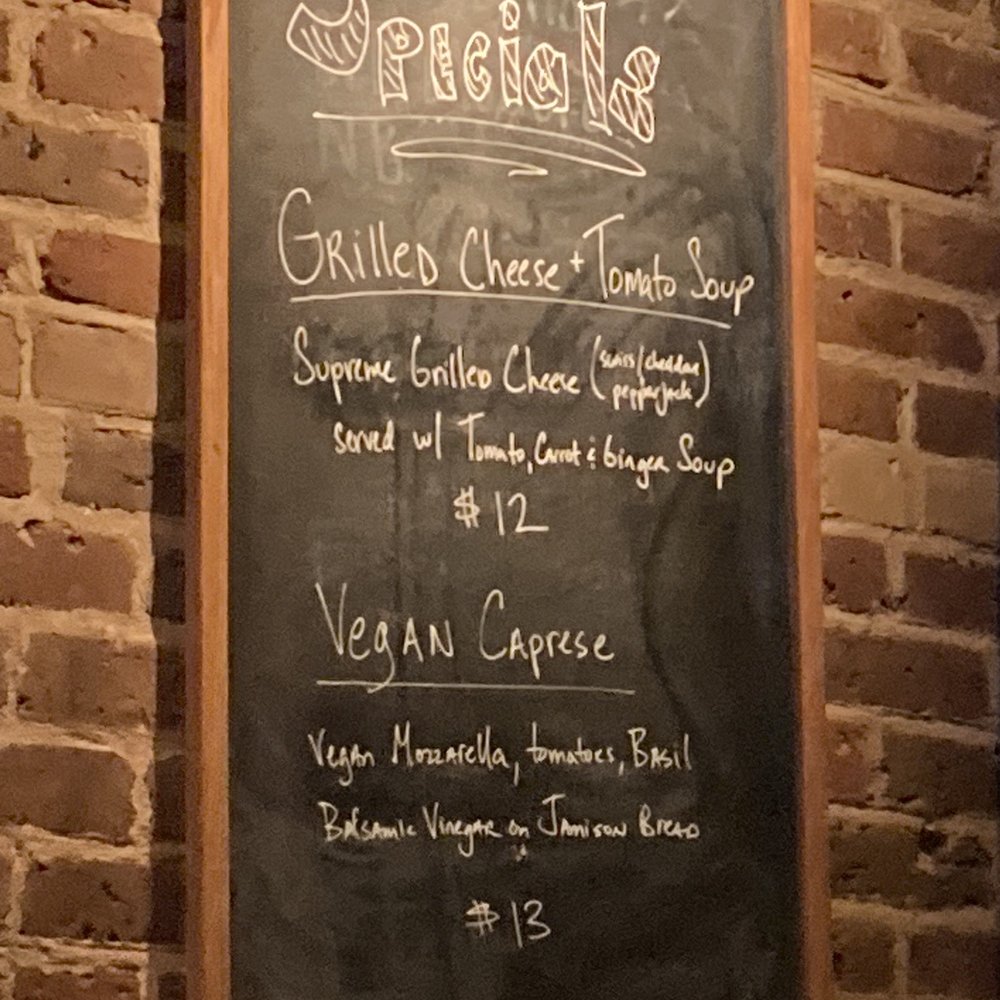 Specials
Grilled Cheese + Tomato Soup
Supreme Grilled Cheese (swiss/cheddar
pepperjack)
served w/ Tomato, Carrot & Ginger Soup
$12
Vegan Caprese
Vegan Mozzarella, tomatoes, Basil
Balsamic Vinegar on Jamison Bread
$13